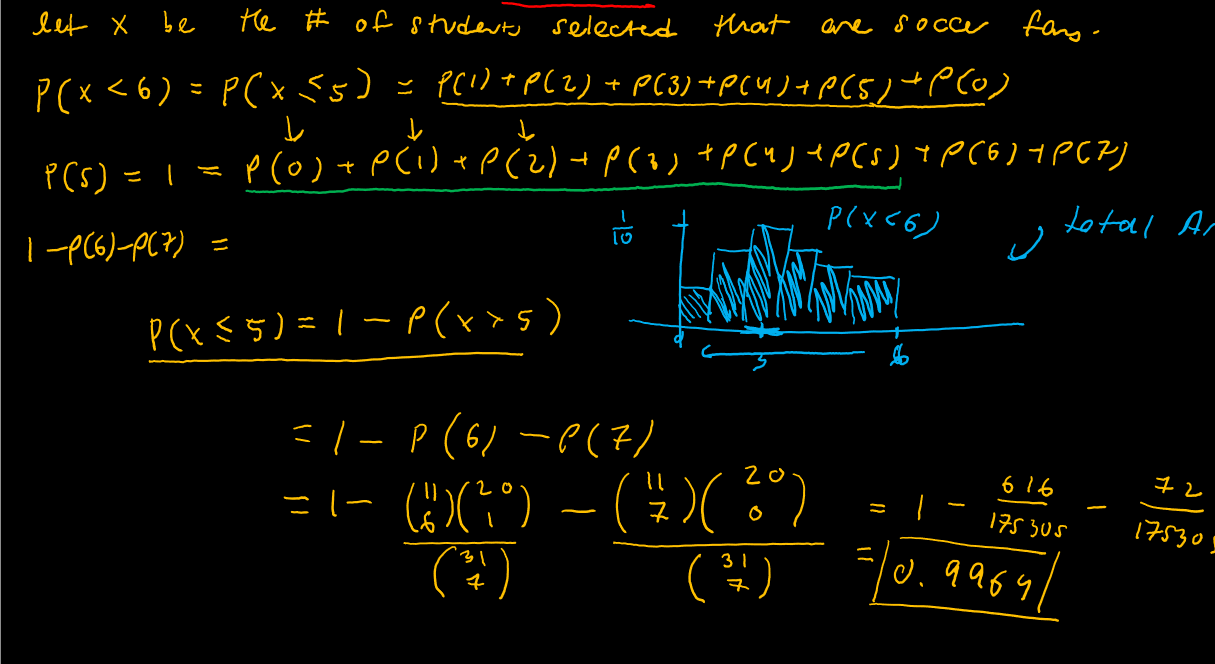 let x be the # of students selected that are soccer fans.
P(x < 6) = P(x ≤ 5) = P(1) + P(2) + P(3) + P(4) + P(5) + P(0)
P(S) = 1 = P(0) + P(1) + P(2) + P(3) + P(4) + P(5) + P(6) + P(7)
1/10 P(x < 6) total
1 - P(6) - P(7) =
P(x ≤ 5) = 1 - P(x > 5)
0 3 6
= 1 - P(6) - P(7)
= 1 - (11 6)(20 1)/(31 7) - (11 7)(20 0)/(31 7) = 1 - 616/175305 - 72/175305
= 0.9964